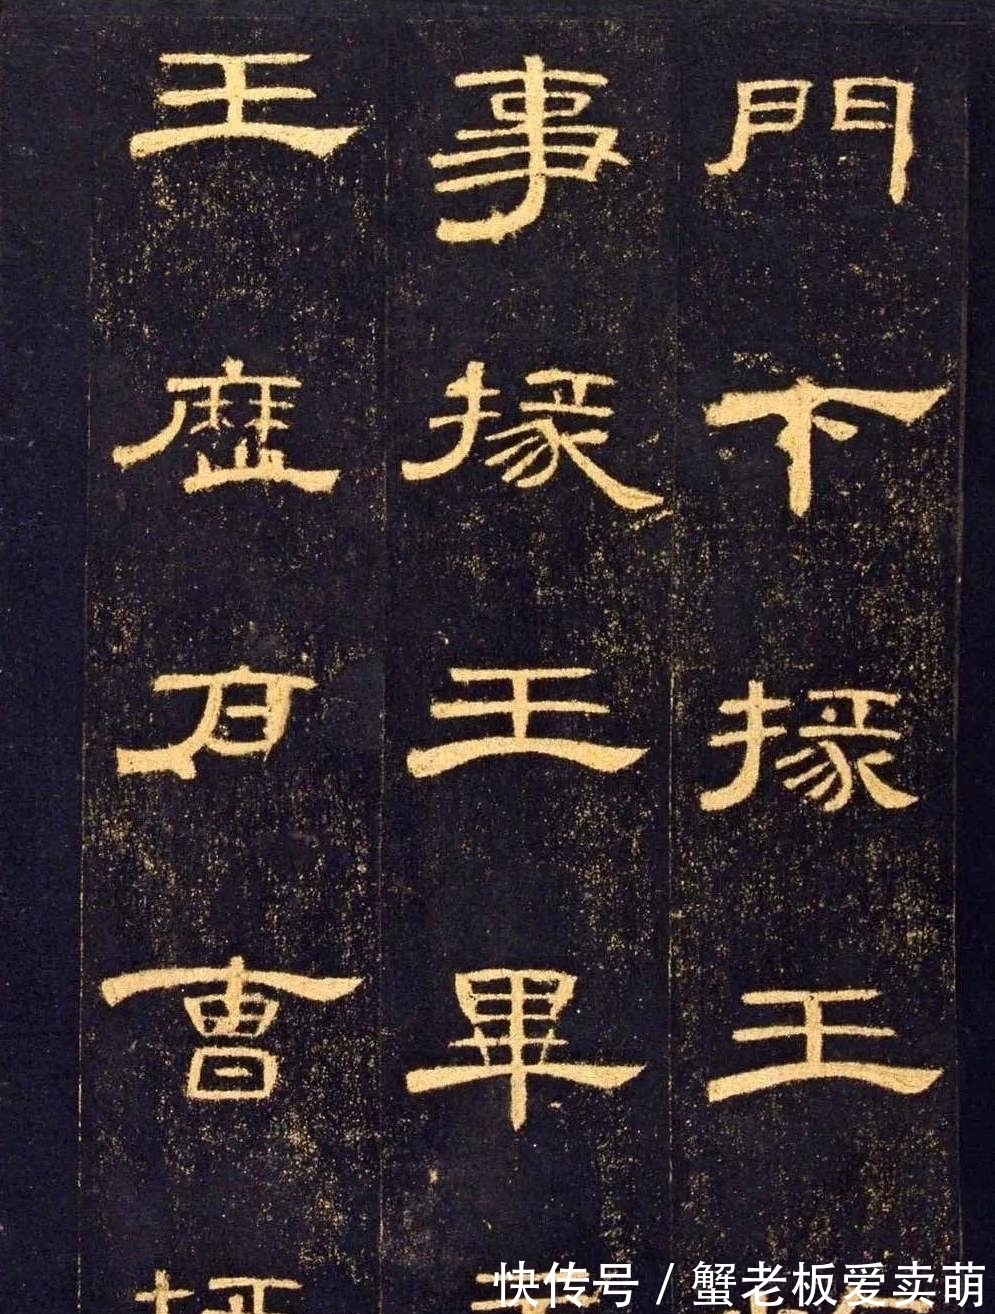 門下掾王
事掾王畢
王歷戶曹
快传号 / 蟹老板爱卖萌